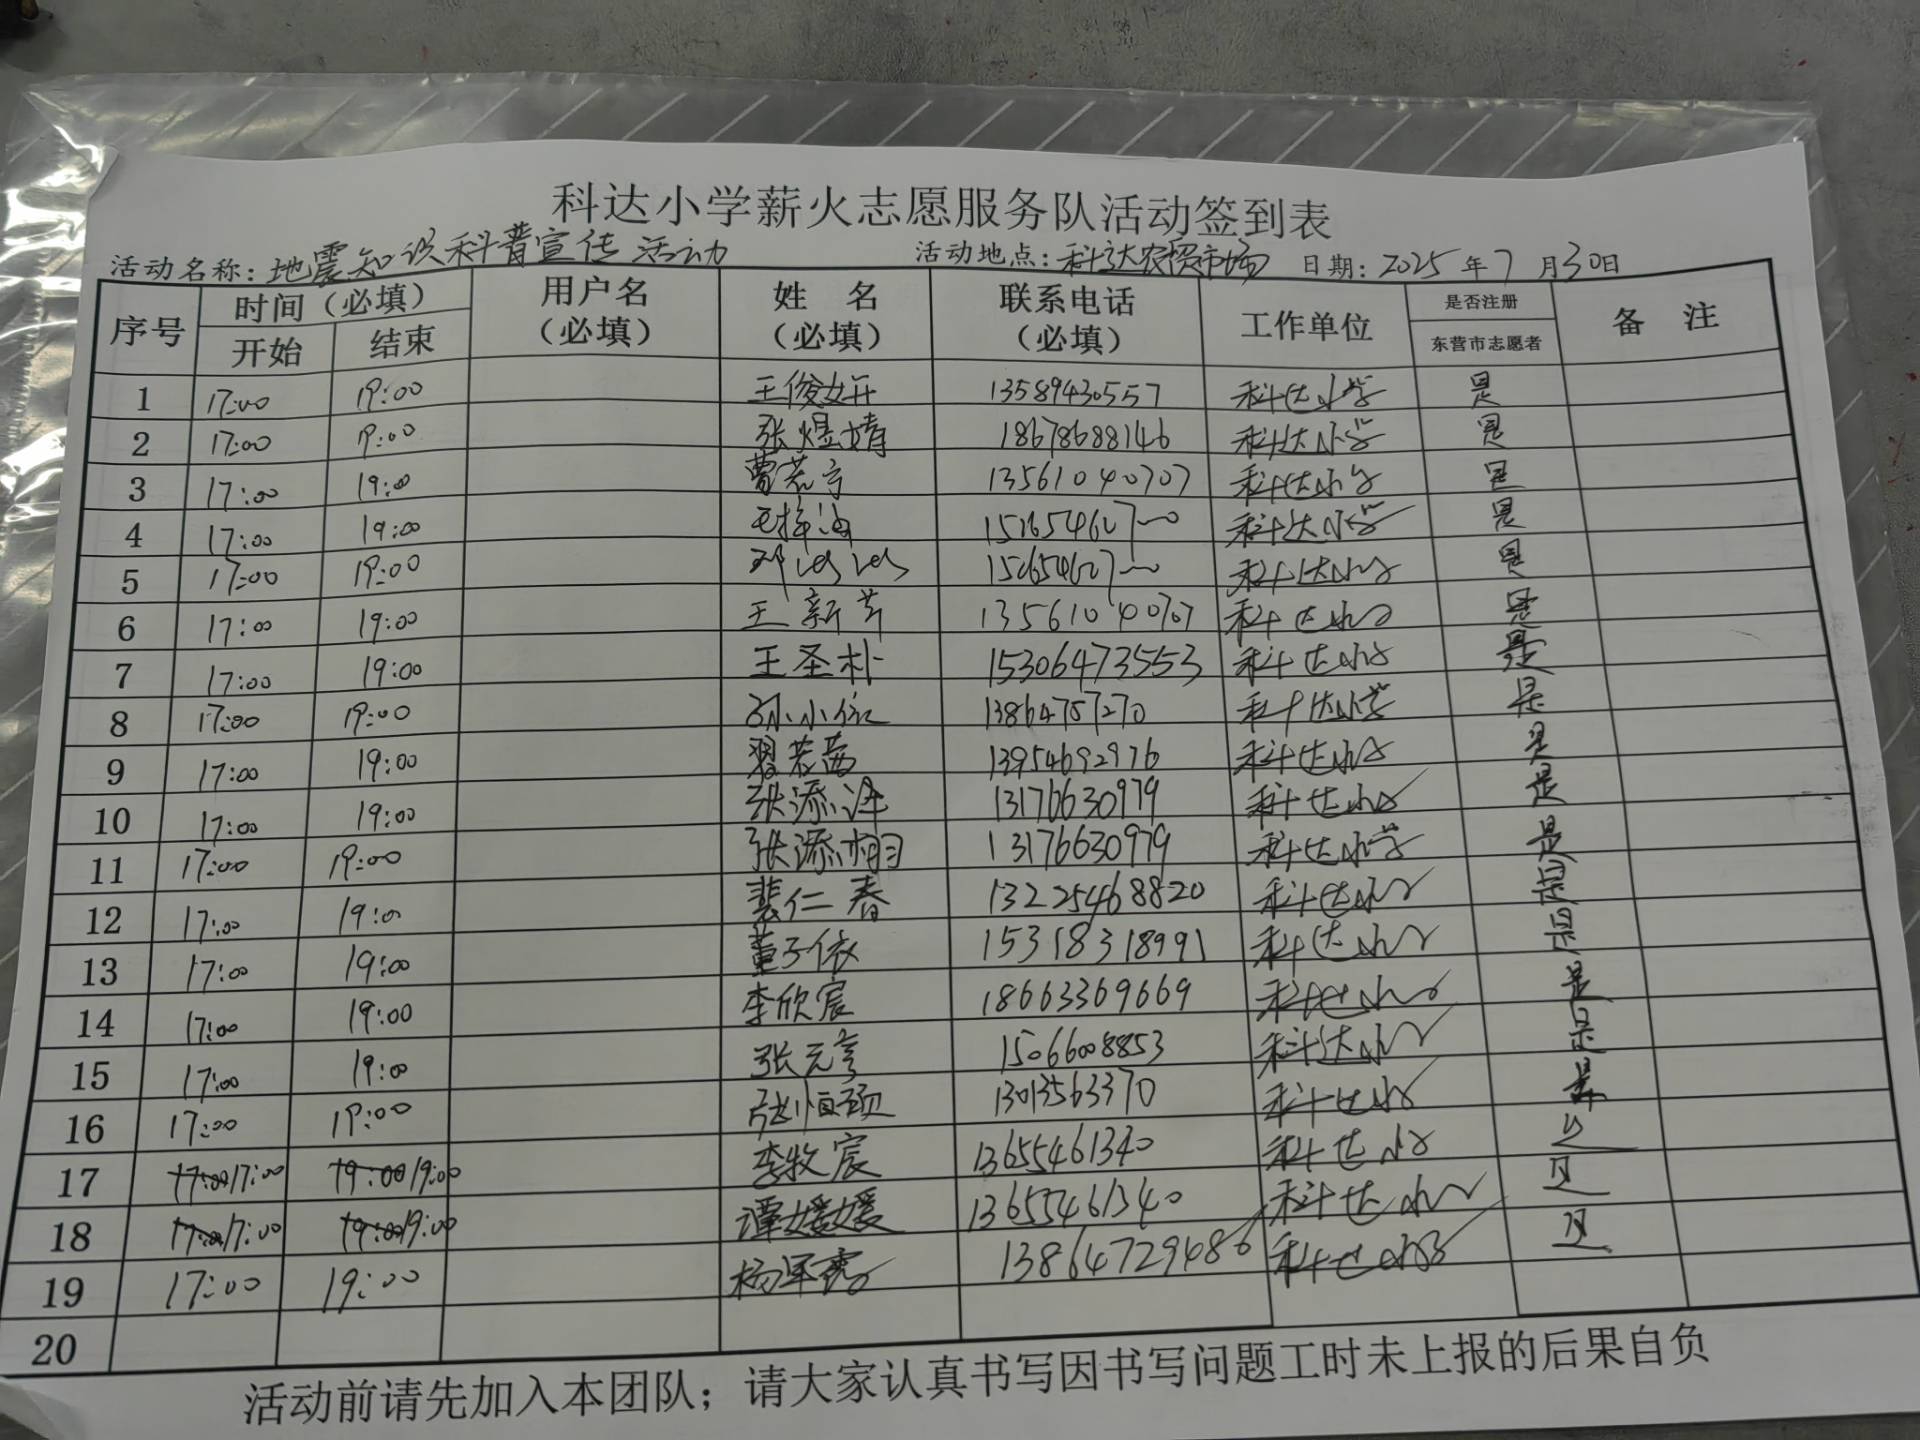 科达小学薪火志愿服务队活动签到表
活动名称：地震知识科普宣传活动 活动地点：科达农贸市场 日期：2025年7月30日
序号 时间（必填） 用户名（必填） 姓 名（必填） 联系电话（必填） 工作单位 是否注册 备 注
开始 结束 东营市志愿者
1 17:00 19:00 王俊妍 13589430557 科达小学 是
2 17:00 19:00 张煜婧 18678688146 科达小学 是
3 17:00 19:00 曹若宁 13561040707 科达小学 是
4 17:00 19:00 科达小学 是
5 17:00 19:00 科达小学 是
6 17:00 19:00 王新芹 13561040707 科达小学 是
7 17:00 19:00 王圣朴 15306473553 科达小学 是
8 17:00 19:00 孙小依 13864757270 科达小学 是
9 17:00 19:00 翟若茜 13954692976 科达小学 是
10 17:00 19:00 张添泽 13176630979 科达小学 是
11 17:00 19:00 张添栩 13176630979 科达小学 是
12 17:00 19:00 裴仁春 13225468820 科达小学 是
13 17:00 19:00 董子依 15318318991 科达小学 是
14 17:00 19:00 李欣宸 18663369669 科达小学 是
15 17:00 19:00 张元亨 15066008853 科达小学 是
16 17:00 19:00 张恒硕 13013563370 科达小学 是
17 17:00 17:00 19:00 19:00 李牧宸 13655461340 科达小学 是
18 17:00 17:00 19:00 19:00 谭媛媛 13655461340 科达小学 是
19 17:00 19:00 杨军霞 13864729486 科达小学 是
20
活动前请先加入本团队；请大家认真书写因书写问题工时未上报的后果自负